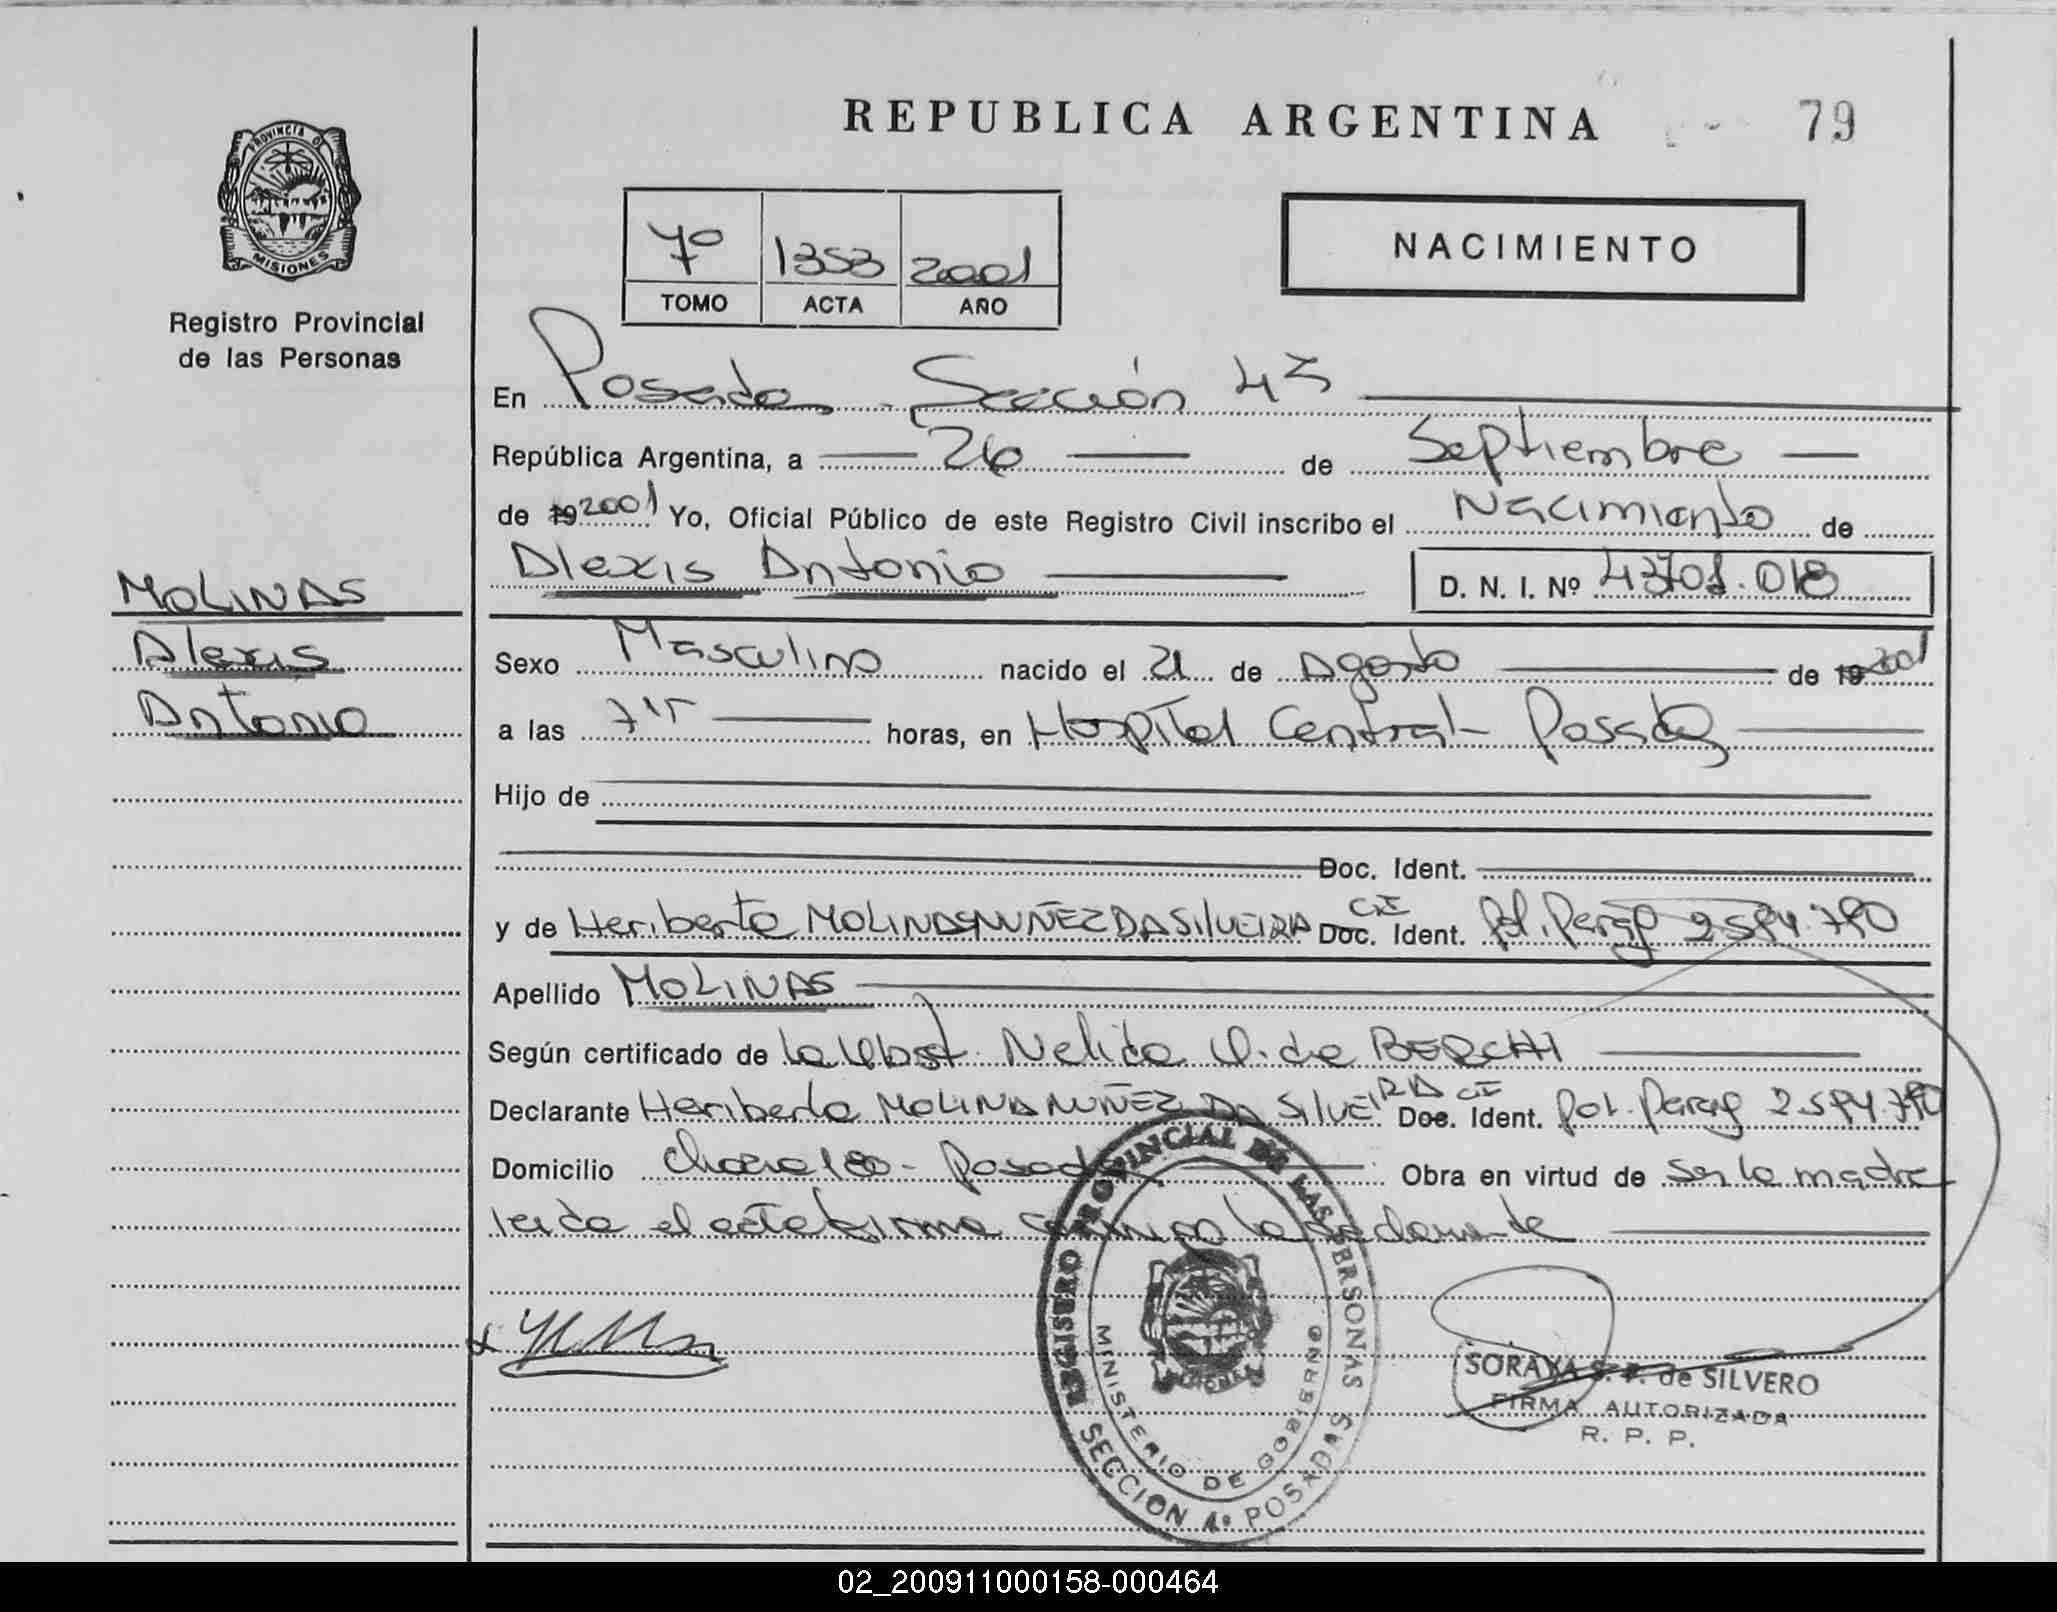 REPUBLICA ARGENTINA 79
PROVINCIA D
MISIONES
Registro Provincial
de las Personas
7º 1353 2001
TOMO ACTA AÑO
NACIMIENTO
En Posadas Sección 4ª
República Argentina, a 26 de Septiembre
de 19 2001 Yo, Oficial Público de este Registro Civil inscribo el Nacimiento de
Alexis Antonio D. N. I. Nº 43701.018
MOLINAS
Alexis
Antonio
Sexo Masculino nacido el 21 de Agosto de 19 2001
a las 7 15 horas, en Hospital Central Posadas
Hijo de
Doc. Ident.
y de Heriberto MOLINAS NUÑEZ DA SILVEIRA CI Doc. Ident. pol. Parag 2.594.790
Apellido MOLINAS
Según certificado de la Obst. Nelida de BERCHI
Declarante Heriberto MOLINAS NUÑEZ DA SILVEIRA CI Doc. Ident. pol. Parag 2.594.790
Domicilio Chacra 180 - Posadas Obra en virtud de ser la madre
leida el acta firma conmigo la declarante
REGISTRO PROVINCIAL DE LAS PERSONAS
MINISTERIO DE GOBIERNO
SECCION 4ª POSADAS
SORAYA S. P. de SILVERO
FIRMA AUTORIZADA
R. P. P.
02_200911000158-000464